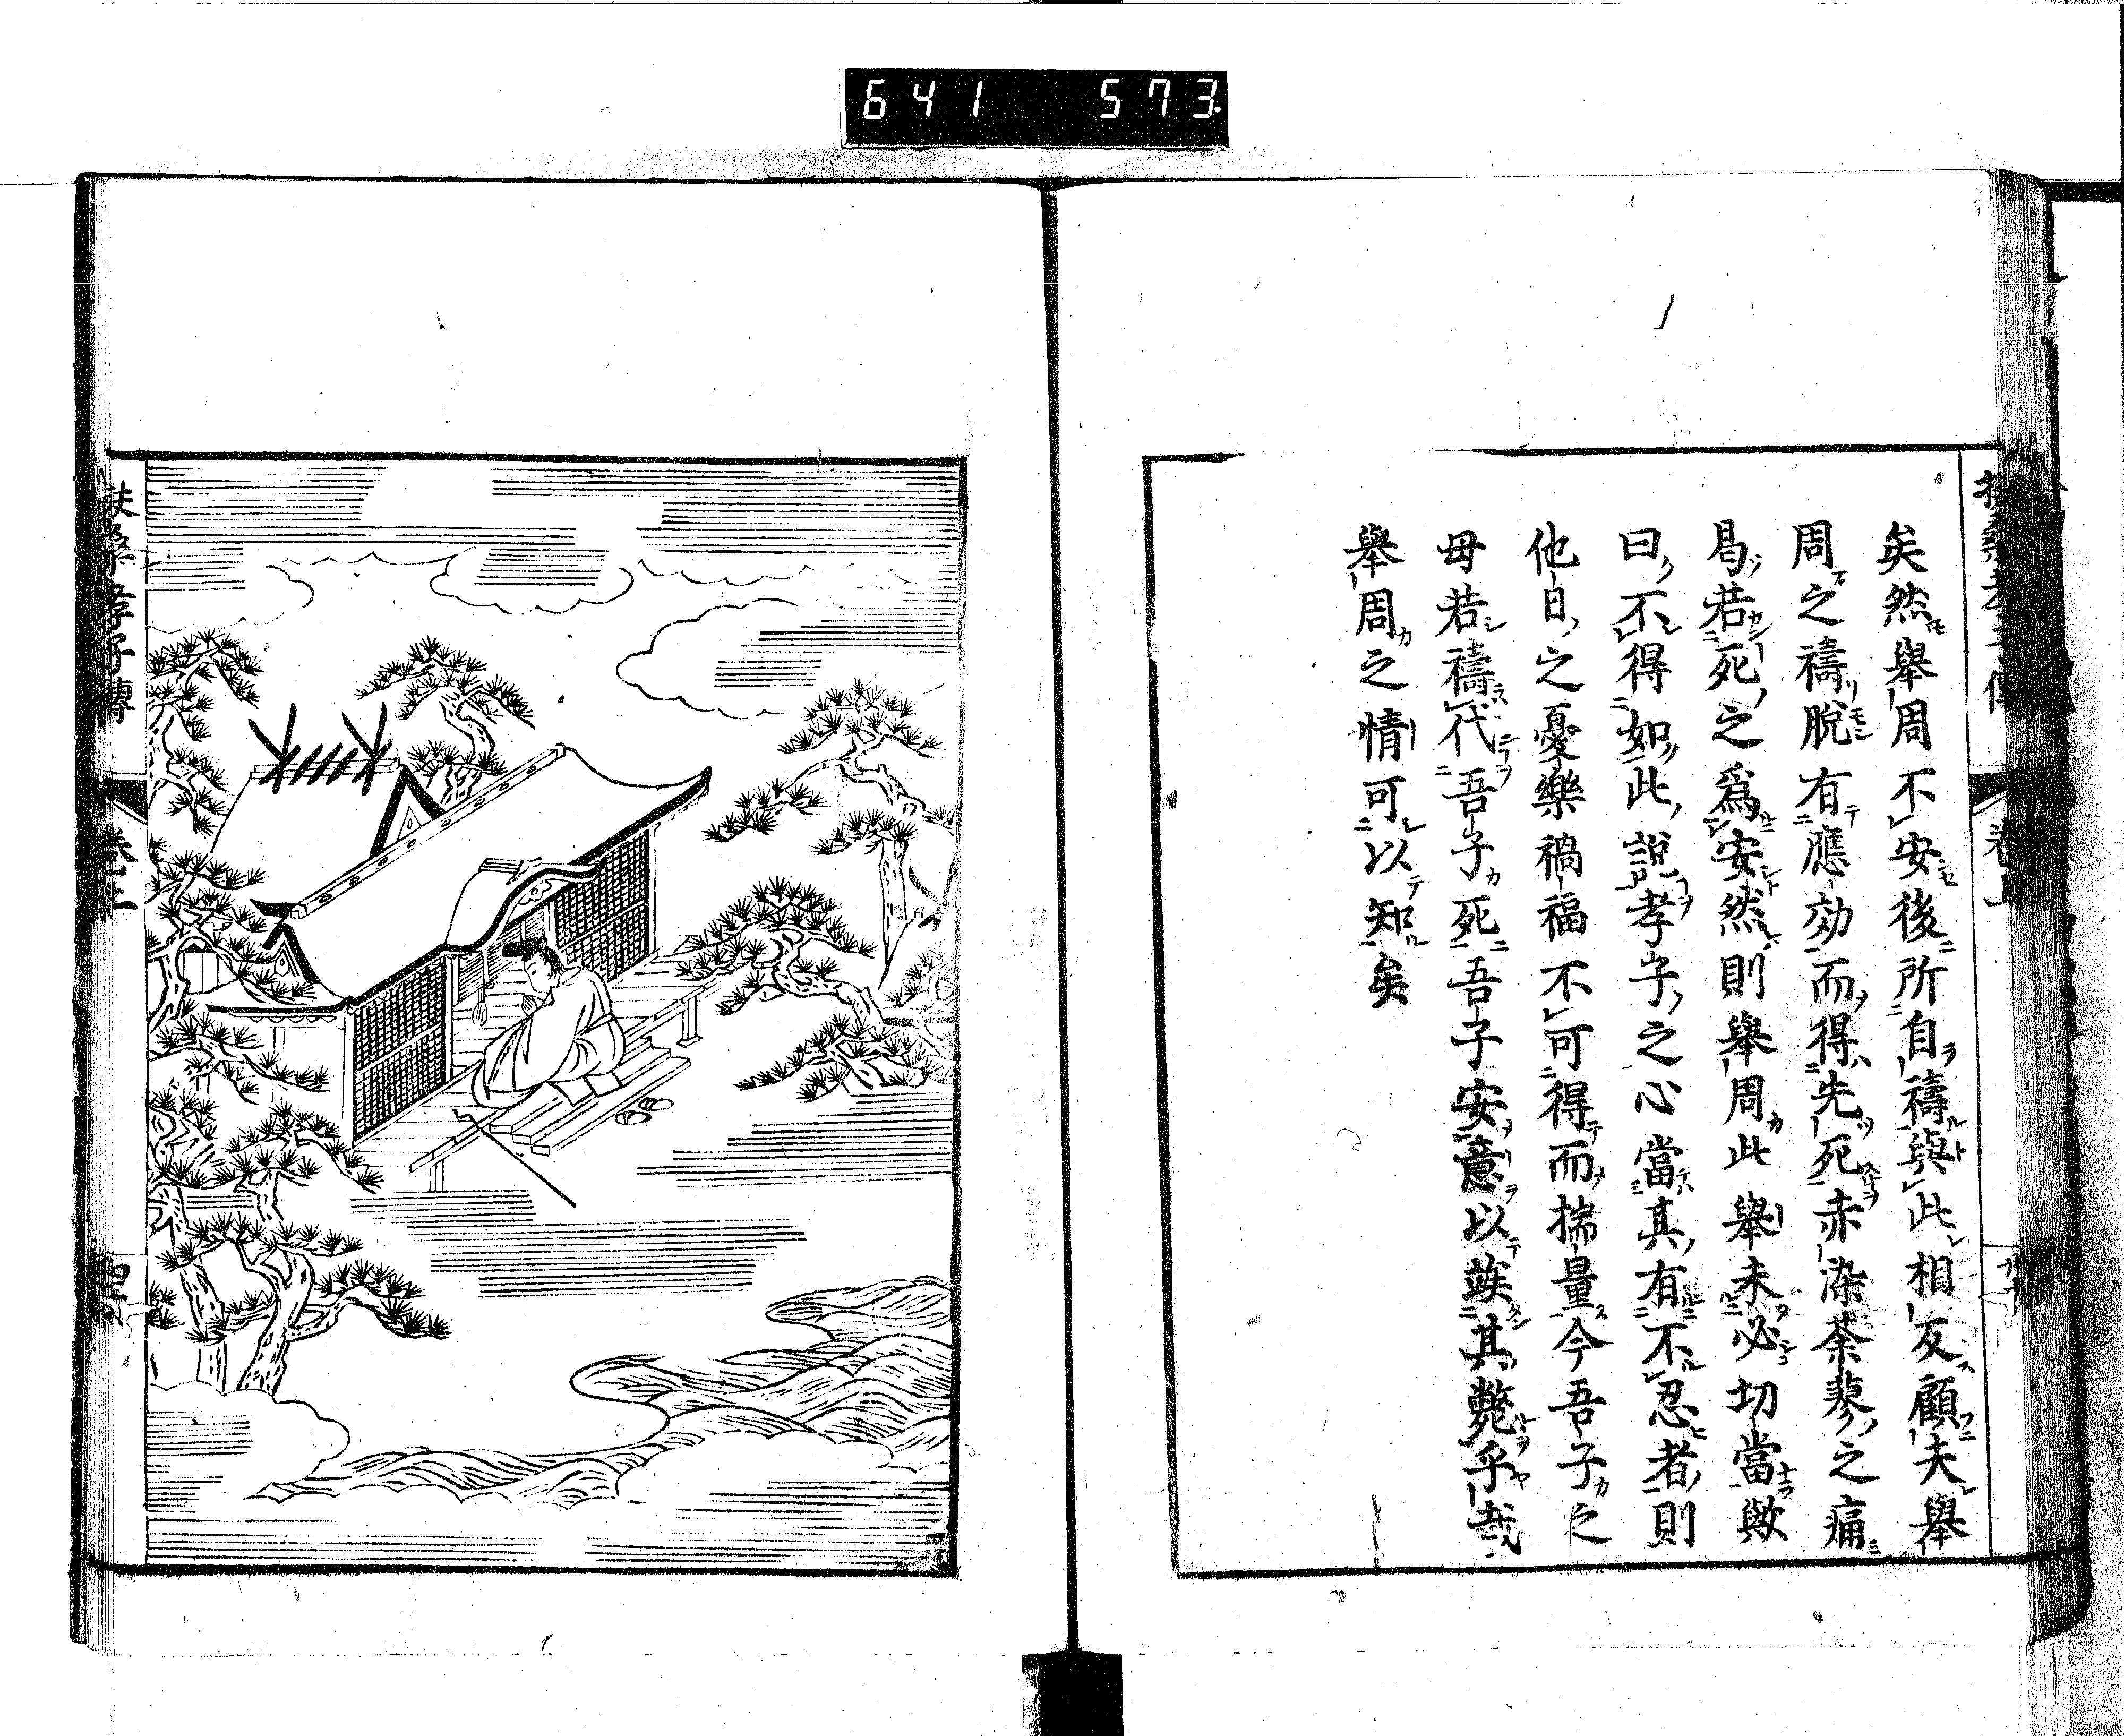 641 573
矣然舉周不安後所自禱與此相反顧夫舉
周之禱脫有應効而得先死赤染荼蓼之痛
曷若死之爲安然則舉周此舉未必切當歟
曰不得如此說孝子之心當其有不忍者則
他日之憂樂禍福不可得而揣量今吾子之
母若禱代吾子死吾子安意以竢其斃乎哉
舉周之情可以知矣
扶桑孝子傳
卷上